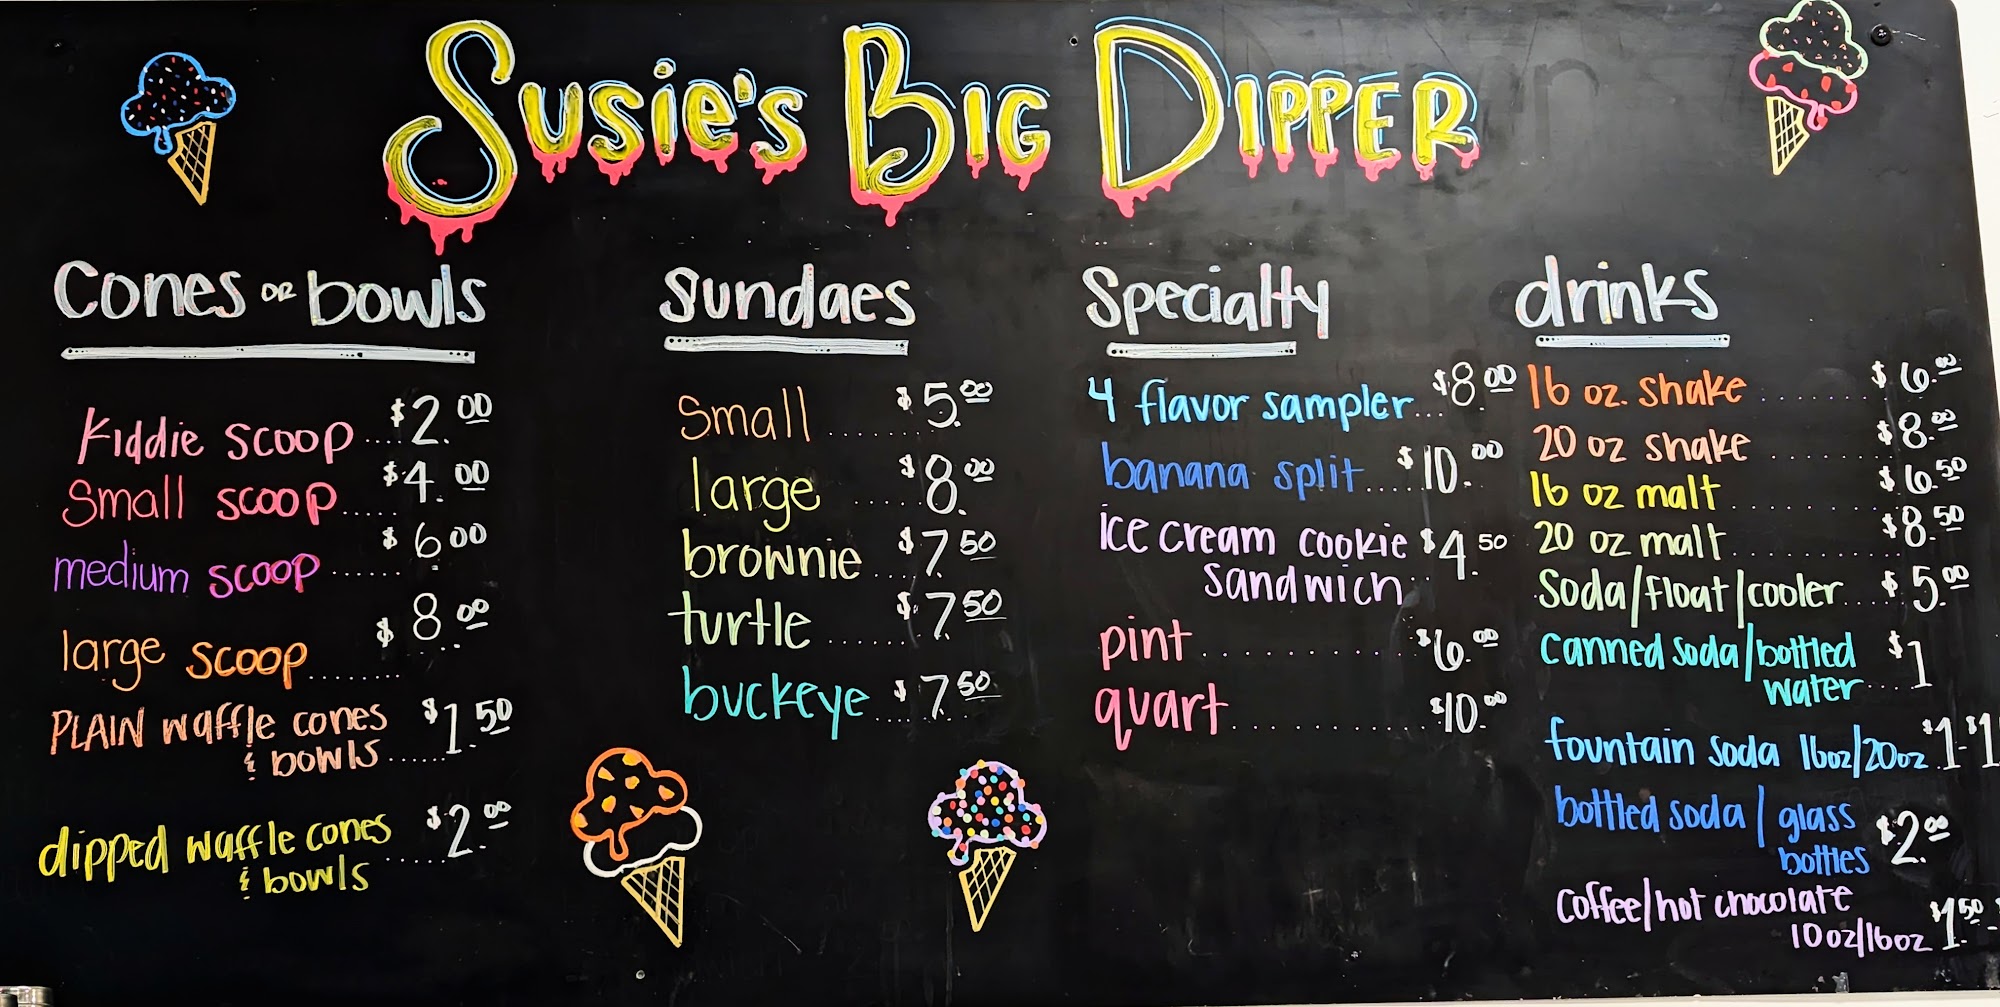 Susie's Big Dipper
Cones or bowls
Kiddie scoop....$2.00
Small scoop.....$4.00
medium scoop......$6.00
large scoop.......$8.00
PLAIN waffle cones $1.50
& bowls......
dipped waffle cones $2.00
& bowls
Sundaes
Small......$5.00
large......$8.00
brownie....$7.50
turtle......$7.50
buckeye....$7.50
Specialty
4 flavor sampler...$8.00
banana split.....$10.00
ice cream cookie $4.50
sandwich..
pint..........$6.00
quart..........$10.00
drinks
16 oz. shake.......$6.00
20 oz shake.......$8.00
16 oz malt.......$6.50
20 oz malt.......$8.50
Soda/float/cooler....$5.00
canned soda/bottled $1
water....
fountain soda 16oz/20oz.$1-$1
bottled soda/glass $2.00
bottles
coffee/hot chocolate $1.50-
10oz/16oz